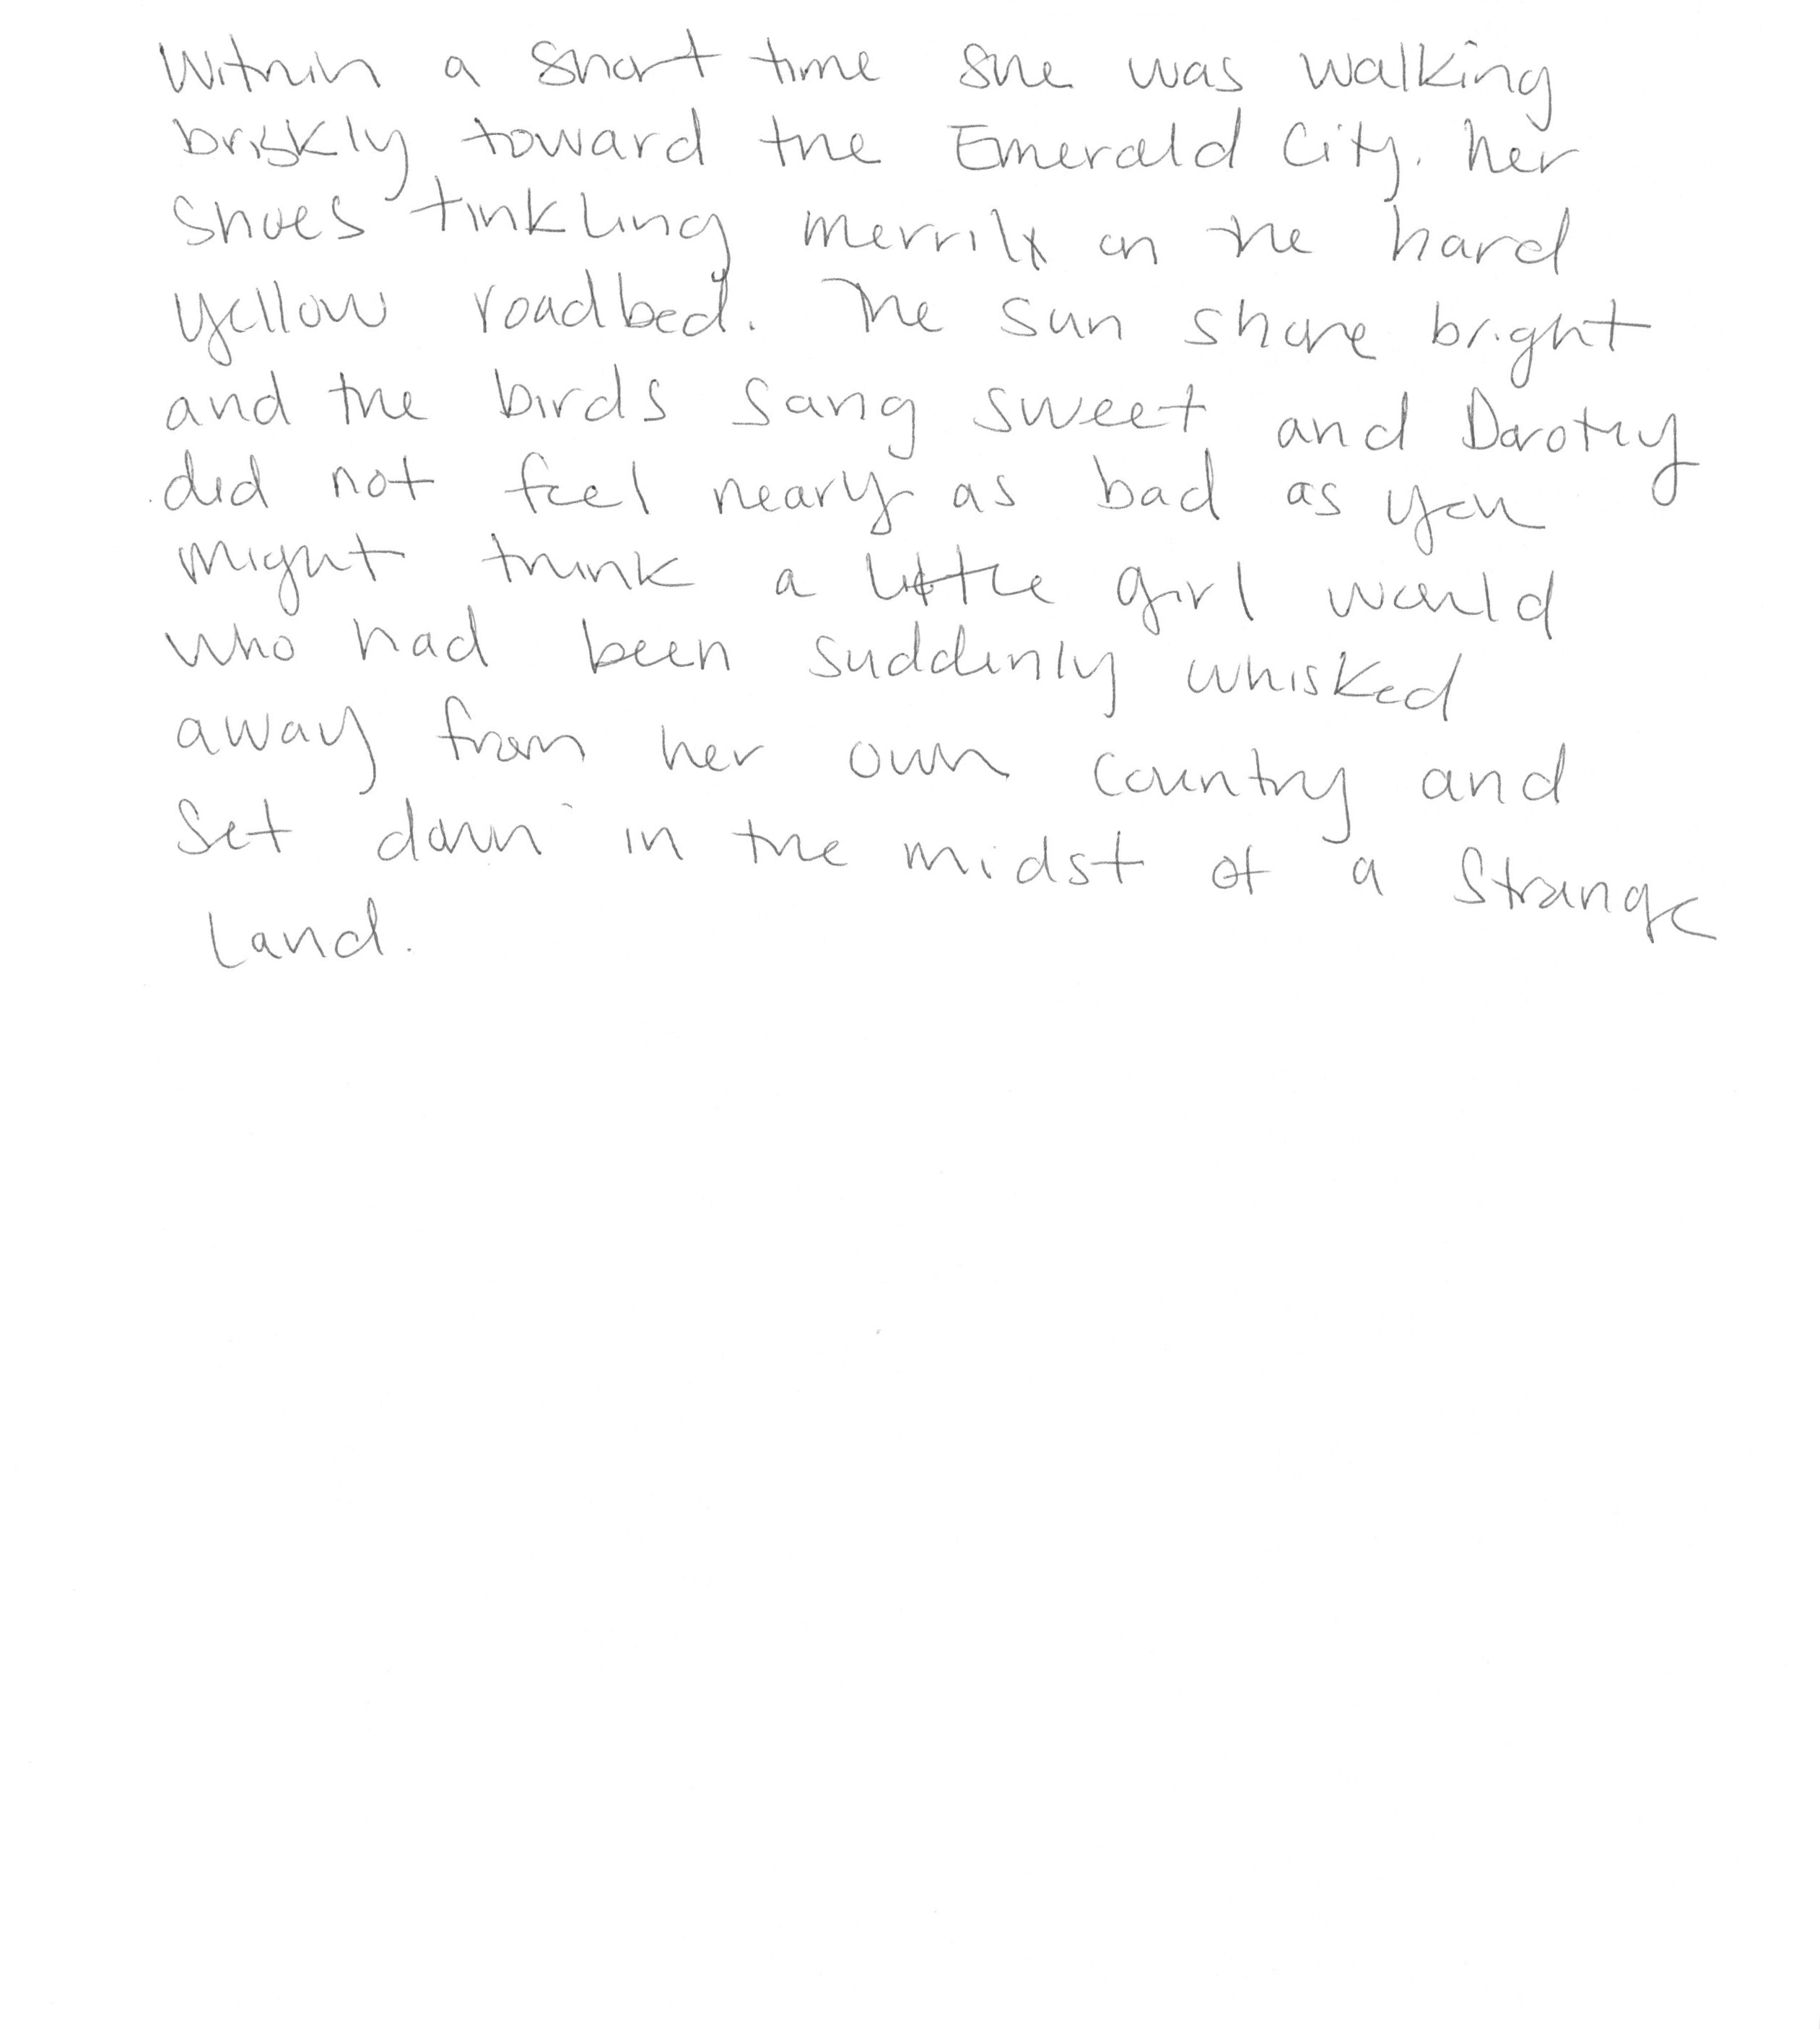 Within a short time she was walking
briskly toward the Emerald City, her
shoes tinkling merrily on the hard
yellow roadbed. The sun shone bright
and the birds sang sweet and Dorothy
did not feel nearly as bad as you
might think a little girl would
who had been suddenly whisked
away from her own country and
set down in the midst of a strange
land.